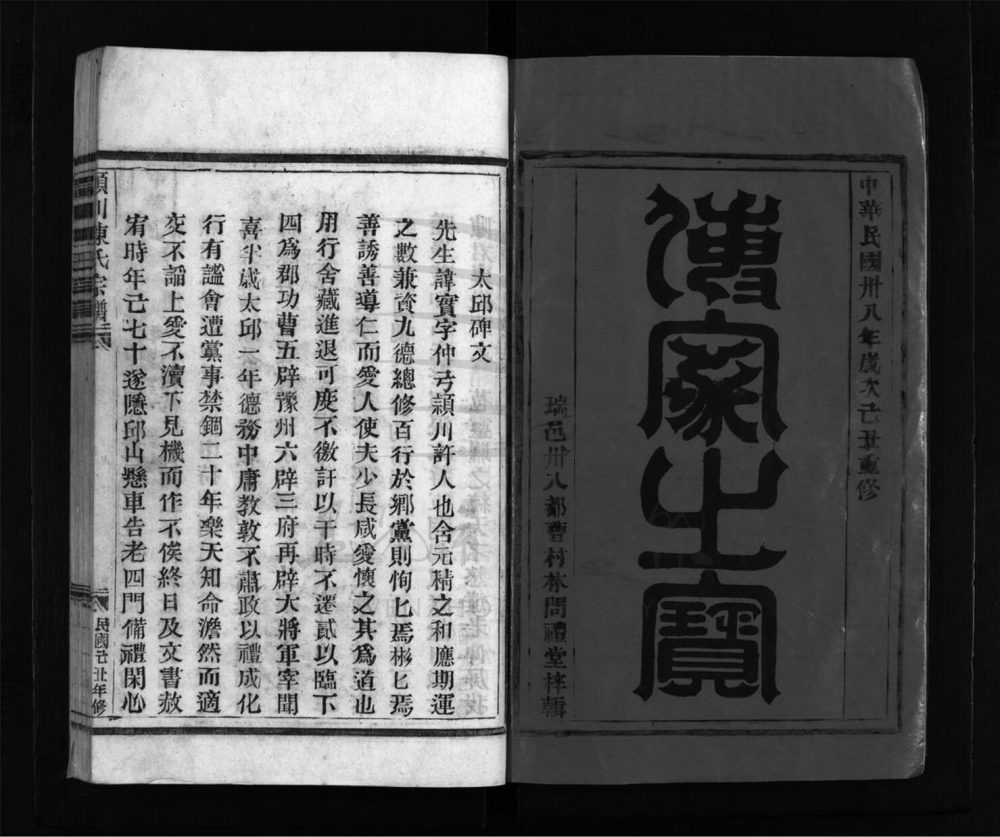 中華民國卅八年歲次己丑重修
傳家之寶
瑞邑卅八都曹村林問禮堂梓輯
太邱碑文
先生諱寔字仲弓頴川許人也含元精之和應期運
之數兼資九德總修百行於鄉黨則恂匕焉彬匕焉
善誘善導仁而愛人使夫少長咸愛懷之其爲道也
用行舍藏進退可度不徼訐以干時不遷貳以臨下
四爲郡功曹五辟豫州六辟三府再辟大將軍宰聞
喜半歲太邱一年德務中庸教敦不肅政以禮成化
行有謐會遭黨事禁錮二十年樂天知命澹然而適
交不謟上愛不瀆下見機而作不俟終日及文書赦
宥時年己七十遂隱邱山懸車告老四門備禮閑心
頴川陳氏宗譜
民國己丑年修